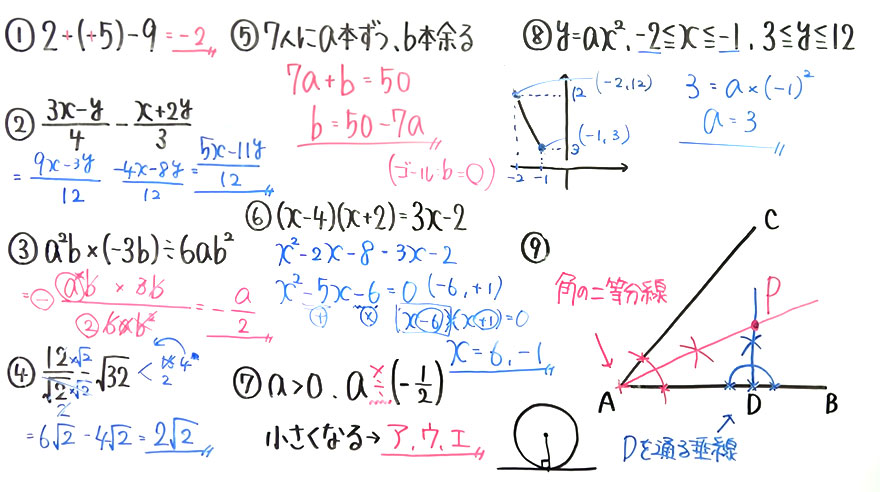 ① 2+(+5)-9 = -2
② (3x-y)/4 - (x+2y)/3
= (9x-3y)/12 (-4x-8y)/12 = (5x-11y)/12
③ a²b×(-3b)÷6ab²
= - = - a/2
④ 12×√2/√2×√2 - √32 <
2
= 6√2 - 4√2 = 2√2
⑤ 7人にa本ずつ、b本余る
7a+b=50
b=50-7a
(ゴール:b=〇)
⑥ (x-4)(x+2)=3x-2
x²-2x-8=3x-2
x²-5x-6=0 (-6,+1)
(+) (×) (x-6)(x+1)=0
x=6,-1
⑦ a>0. a×÷(-1/2)
小さくなる→ア,ウ,エ
⑧ y=ax², -2≦x≦-1, 3≦y≦12
12 (-2,12)
(-1,3)
3
-2 -1
3=a×(-1)²
a=3
⑨
C
角の二等分線
P
A D B
Dを通る垂線